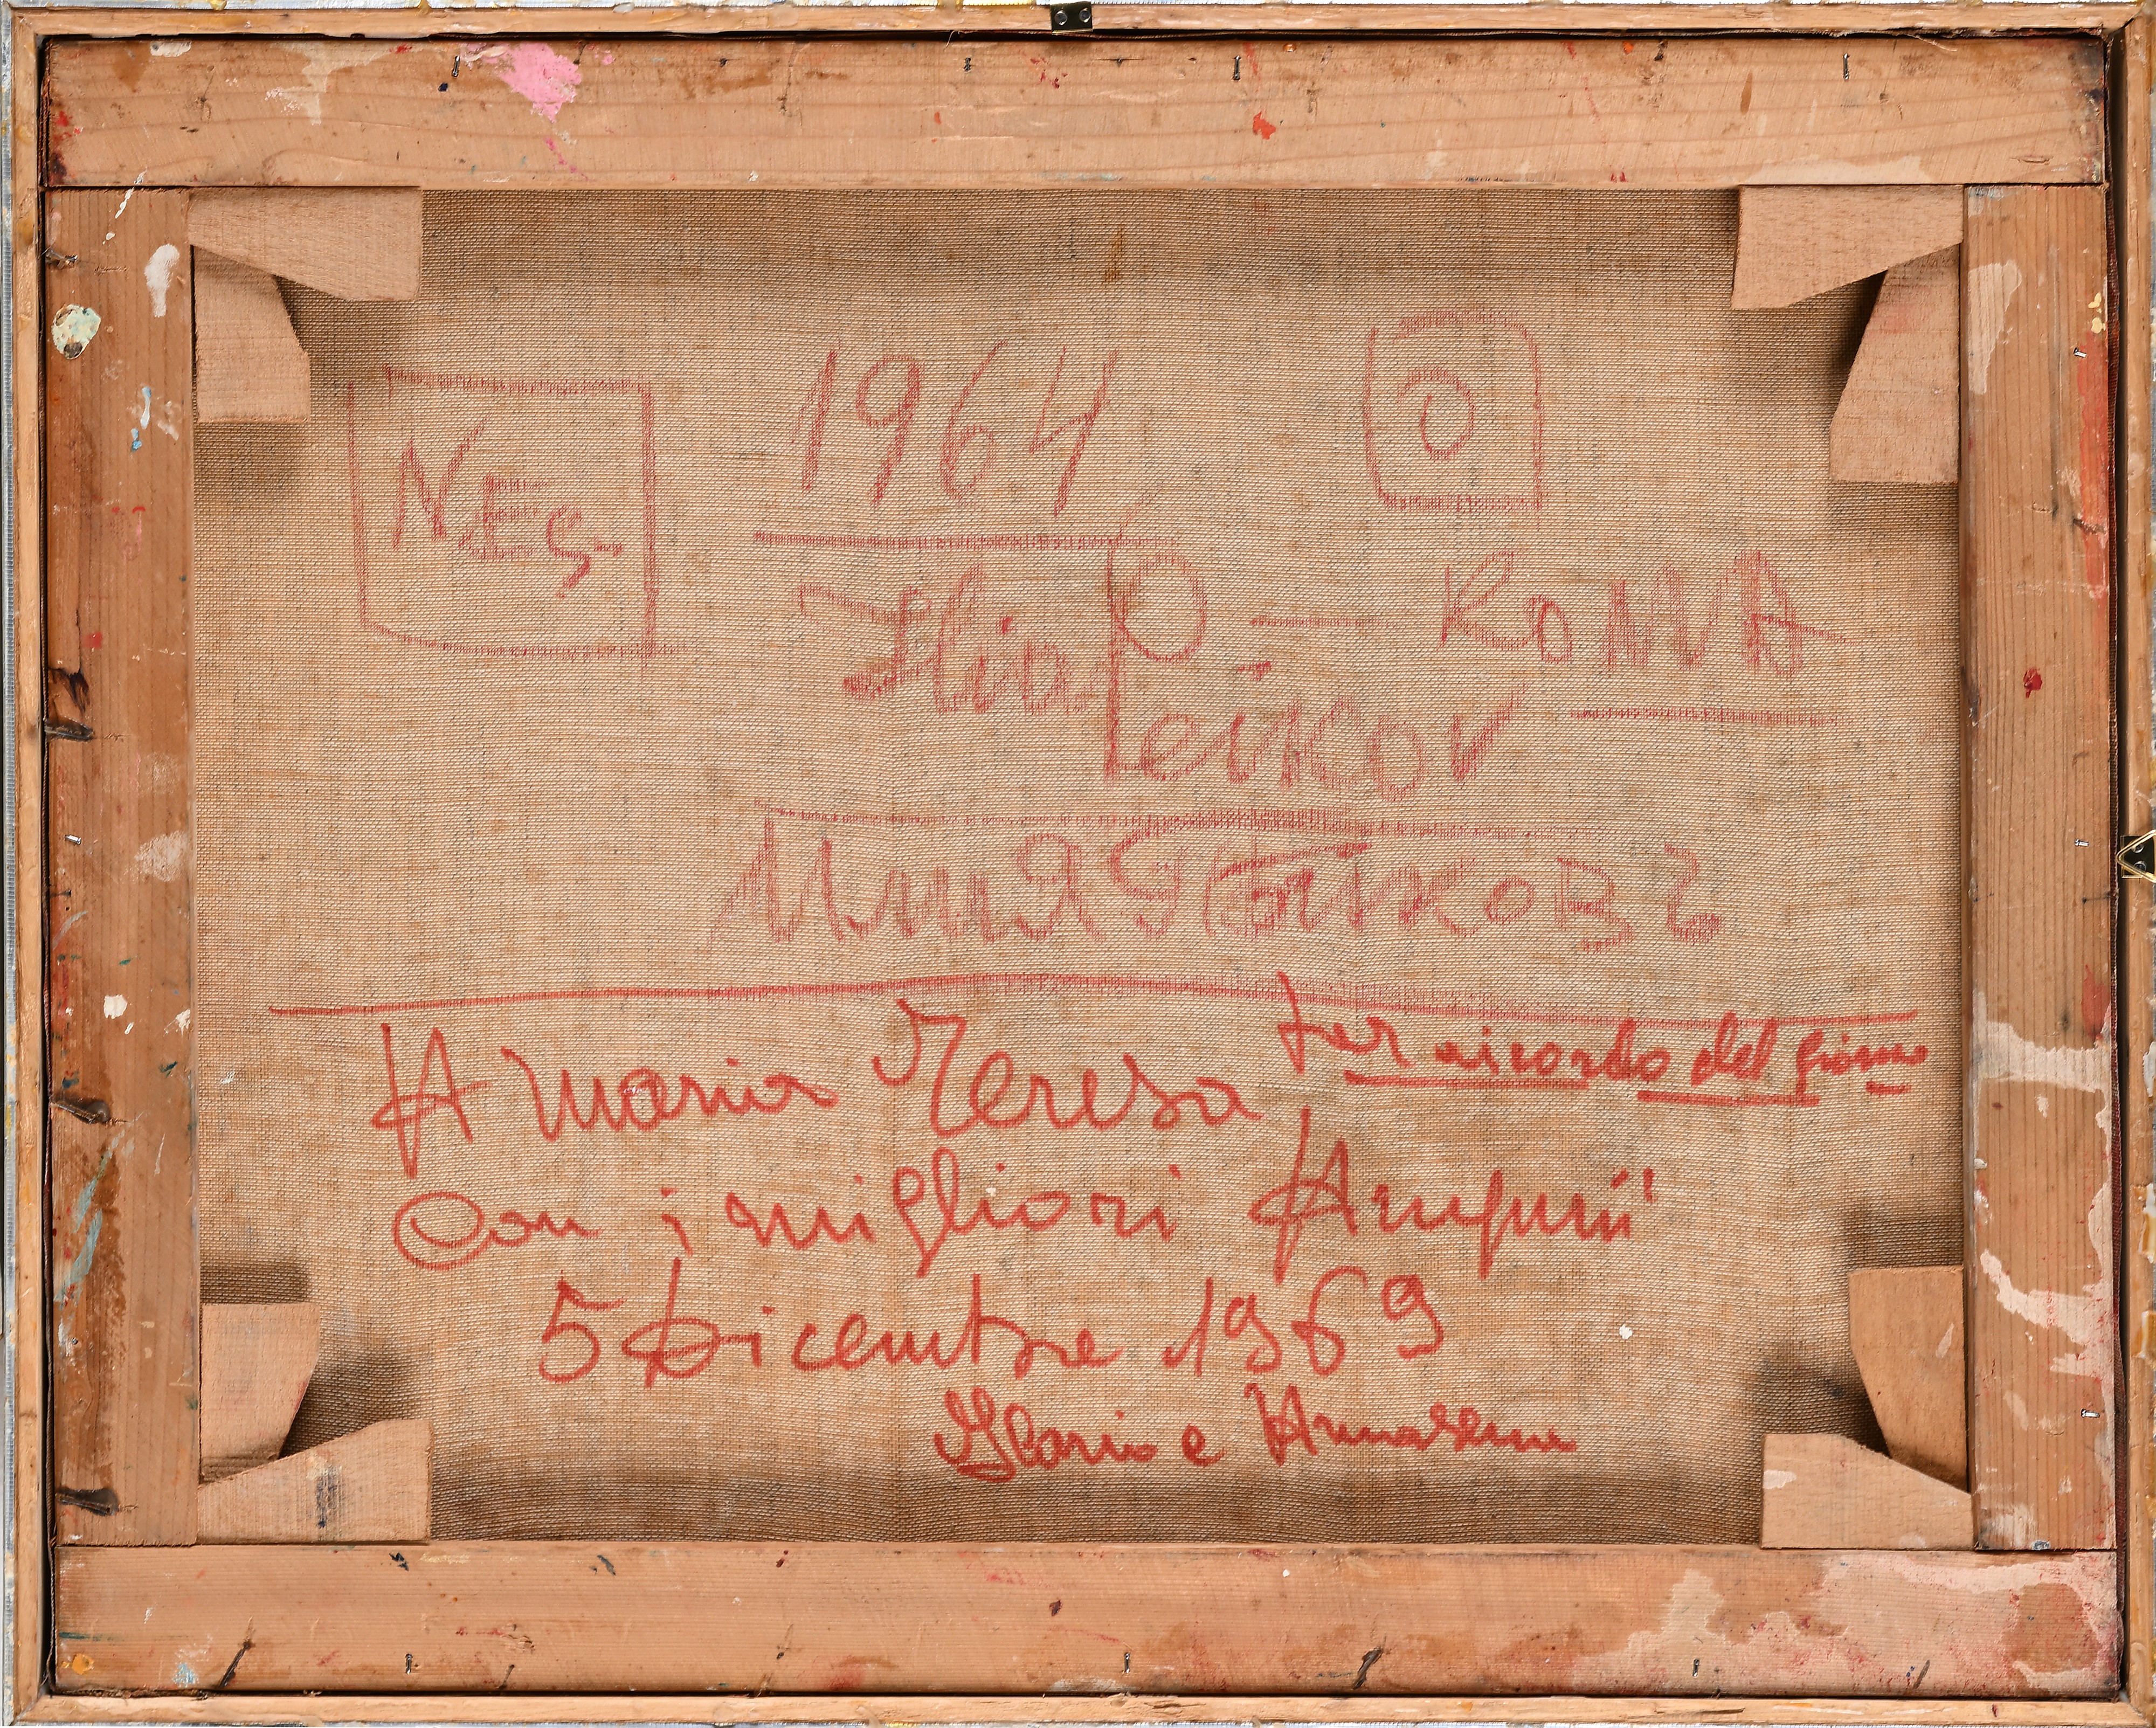 1964
N
O
Ilia Peikov — ROMA
Илия Пейковъ
A Maria Teresa per ricordo del giorno
Con i migliori Auguri
5 Dicembre 1969
Ilario e Annarena